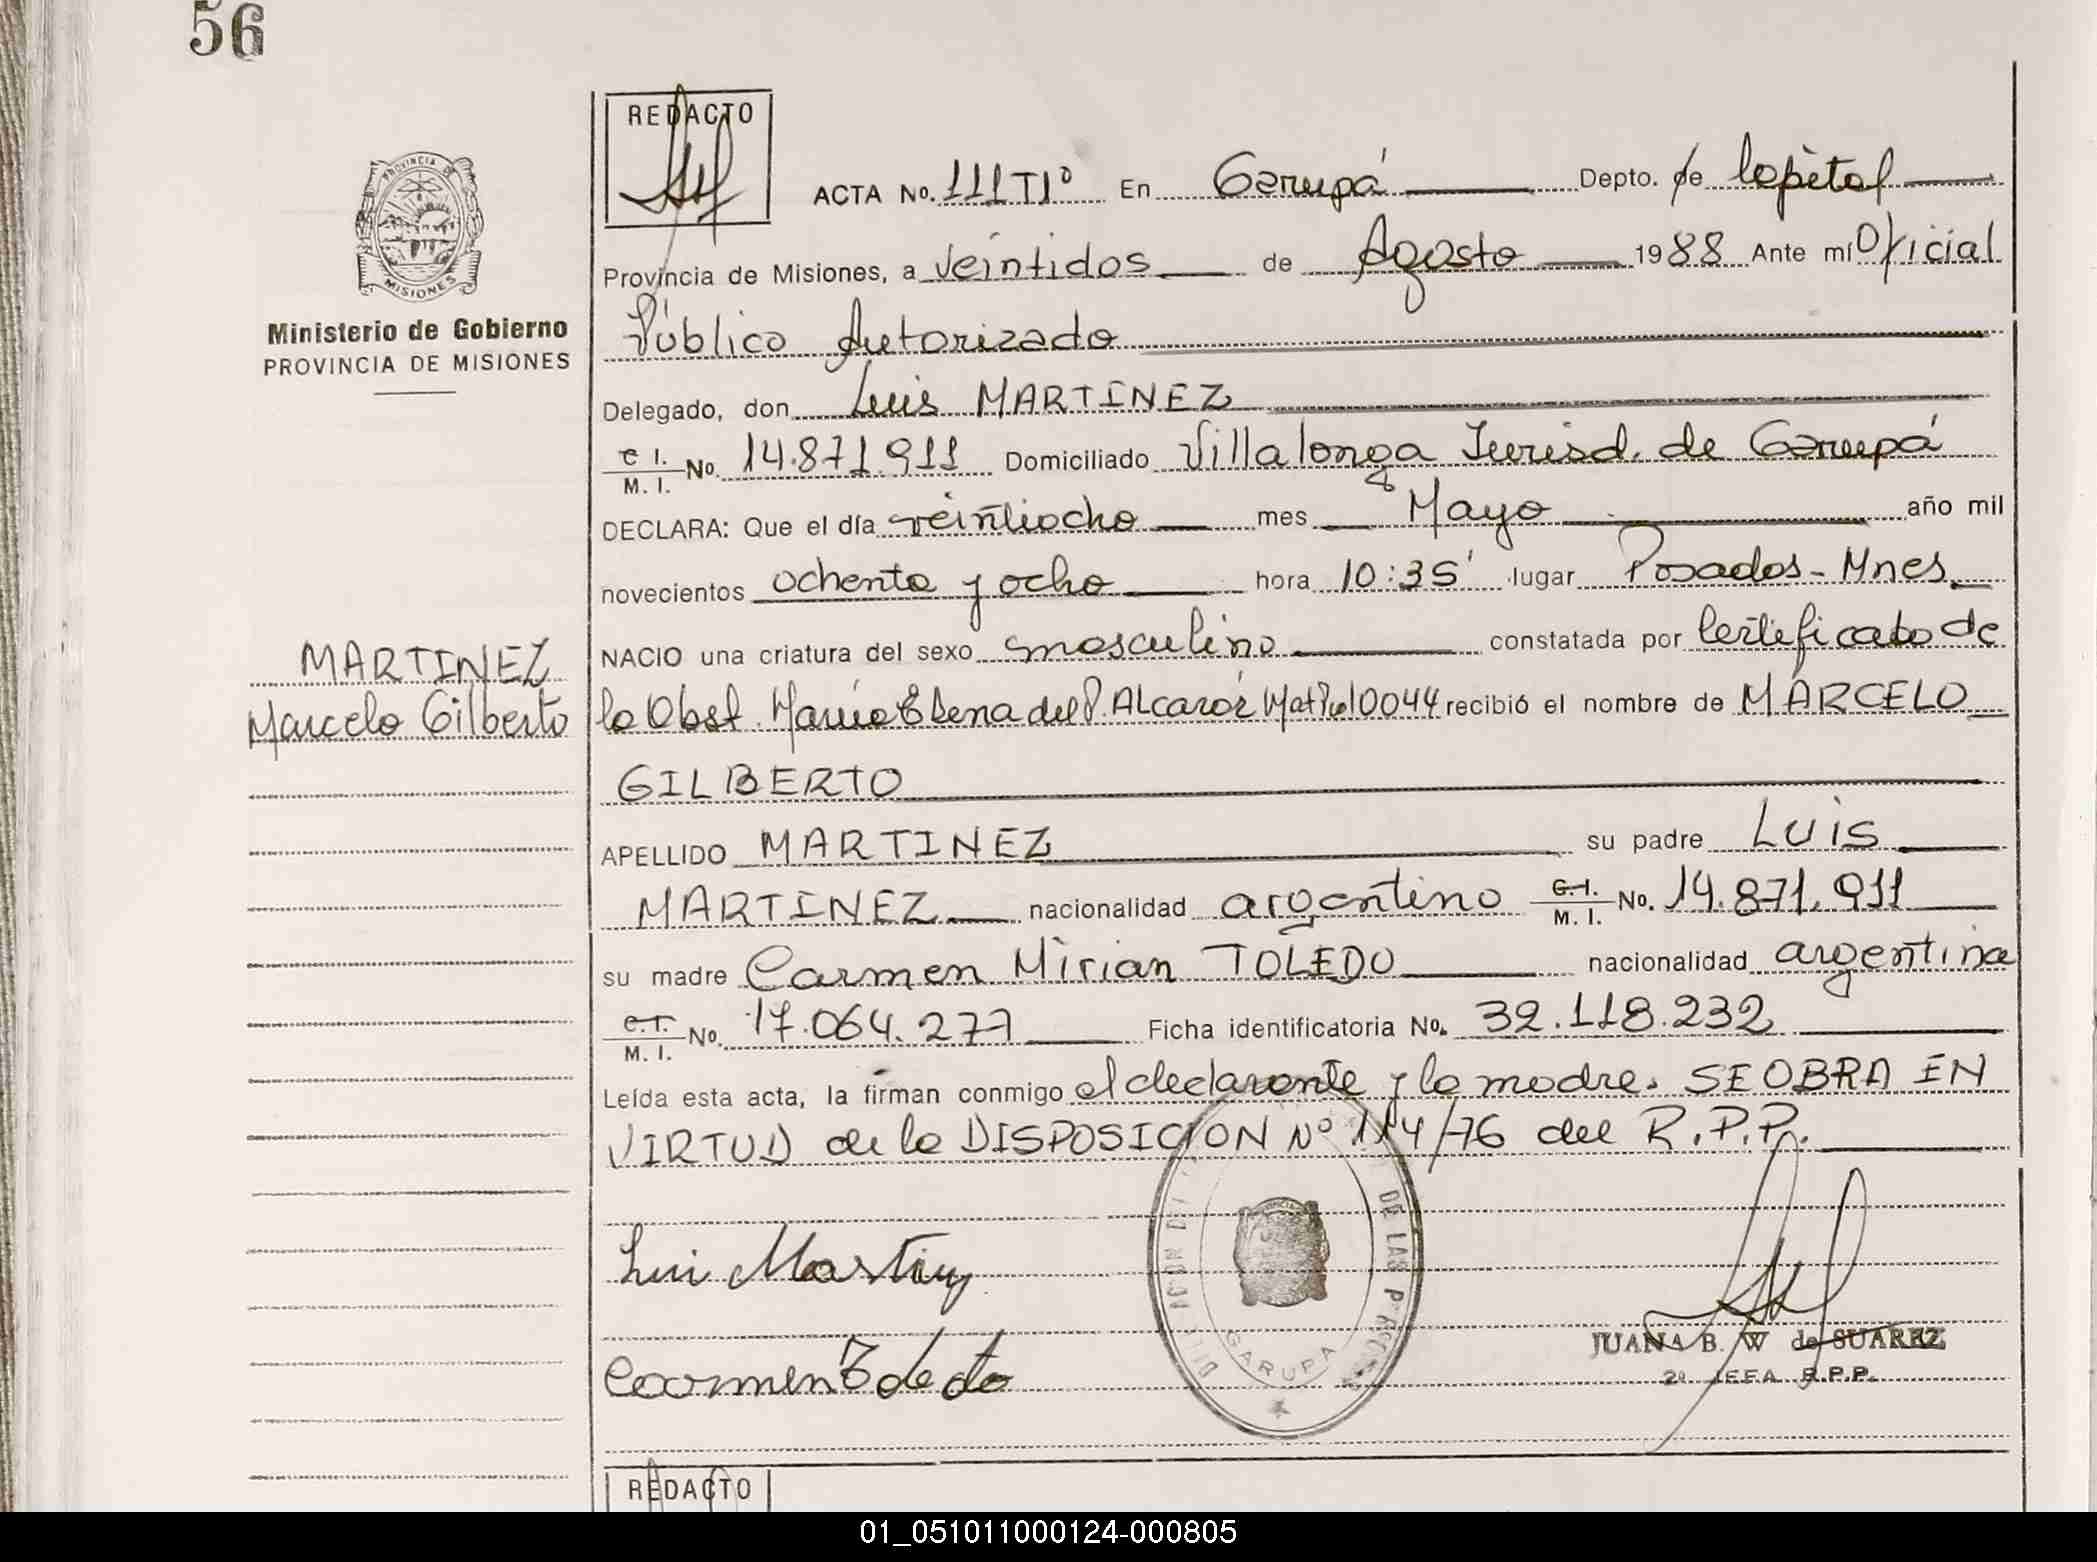 56
REDACTO
ACTA No. 111 T1º En Garupá Depto. de Capital
PROVINCIA DE
MISIONES
Provincia de Misiones, a veintidos de Agosto 1988 Ante mí Oficial
Ministerio de Gobierno
PROVINCIA DE MISIONES
Público Autorizado
Delegado, don Luis MARTINEZ
C I. M. I. No. 14.871.911 Domiciliado Villalonga Jurisd. de Garupá
DECLARA: Que el día veintiocho mes Mayo año mil
novecientos ochenta y ocho hora 10:35' lugar Posadas - Mnes.
NACIO una criatura del sexo masculino constatada por Certificado de
MARTINEZ
Marcelo Gilberto
la Obst. María Elena del P. Alcaráz Mat. 0044 recibió el nombre de MARCELO
GILBERTO
APELLIDO MARTINEZ su padre LUIS
MARTINEZ nacionalidad argentino C.I. M. I. No. 14.871.911
su madre Carmen Mirian TOLEDO nacionalidad argentina
C.I. M. I. No. 17.064.277 Ficha identificatoria No. 32.118.232
Leída esta acta, la firman conmigo el declarante y la madre. SE OBRA EN
VIRTUD de la DISPOSICION Nº 114/76 del R.P.P.
DE LAS
GARUPA
JUANA B. W de SUAREZ
2ª JEFA R.P.P.
Carmen Toledo
REDACTO
01_051011000124-000805